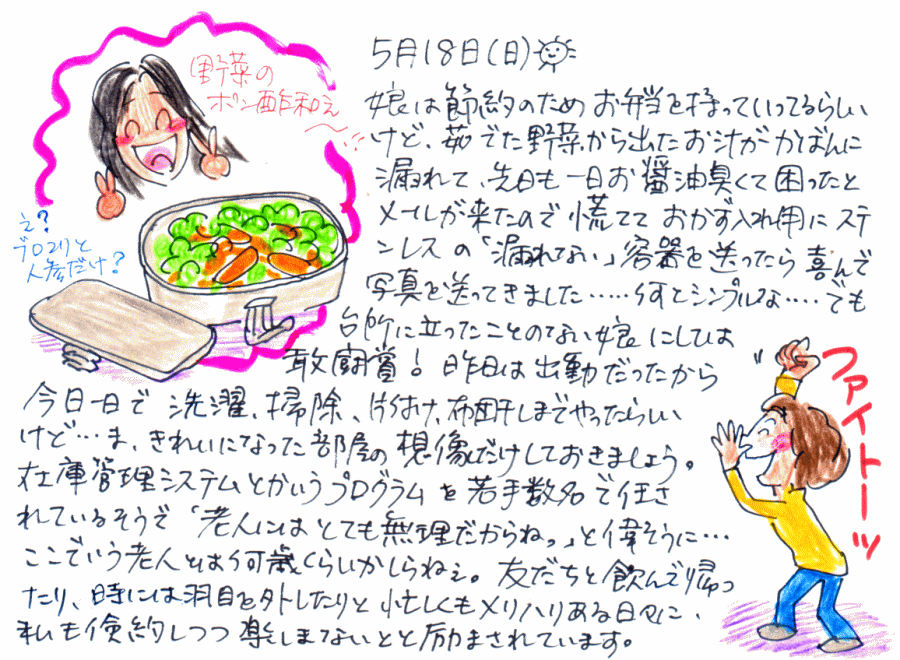 野菜の
ポン酢和え
え?
ブロッコリと
人参だけ?
5月18日(日)
娘は節約のため お弁当を持っていってるらしい
けど、茹でた野菜から出たお汁がかばんに
漏れて、先日も一日お醤油臭くて困ったと
メールが来たので慌てて おかず入れ用に ステ
ンレスの「漏れてない」容器を送ったら 喜んで
写真を送ってきました……何とシンプルな……でも
台所に立ったことのない娘にしては
敢闘賞! 昨日は出勤だったから
今日一日で 洗濯、掃除、片付け、布団干しまでやったらしい
けど…ま、きれいになった部屋の想像だけしておきましょう。
在庫管理システムとかいうプログラムを若手数名で任さ
れているそうで「老人にはとても無理だからねっ」と偉そうに…
ここでいう老人とは何歳くらいかしらねぇ。友だちと飲んで帰っ
たり、時には羽目を外したりと忙しくもメリハリある日々に、
私も倹約しつつ 楽しまないとと励まされています。
ファイトーッ